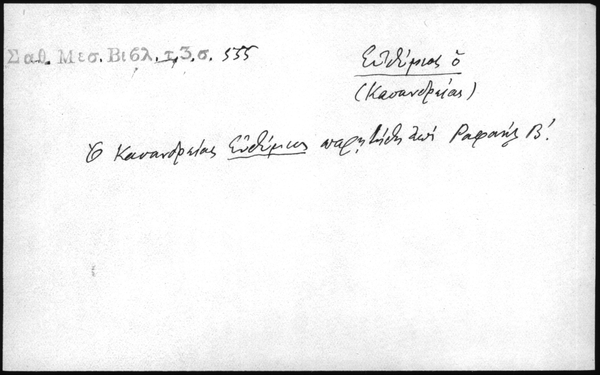 Σαθ. Μεσ. Βιβλ. τ. 3. σ. 555
Εὐθύμιος ὁ
(Κασανδρείας)
Ὁ Κασανδρείας Εὐθύμιος παρῃτήθη ἐπὶ Ραφαὴλ Β'.